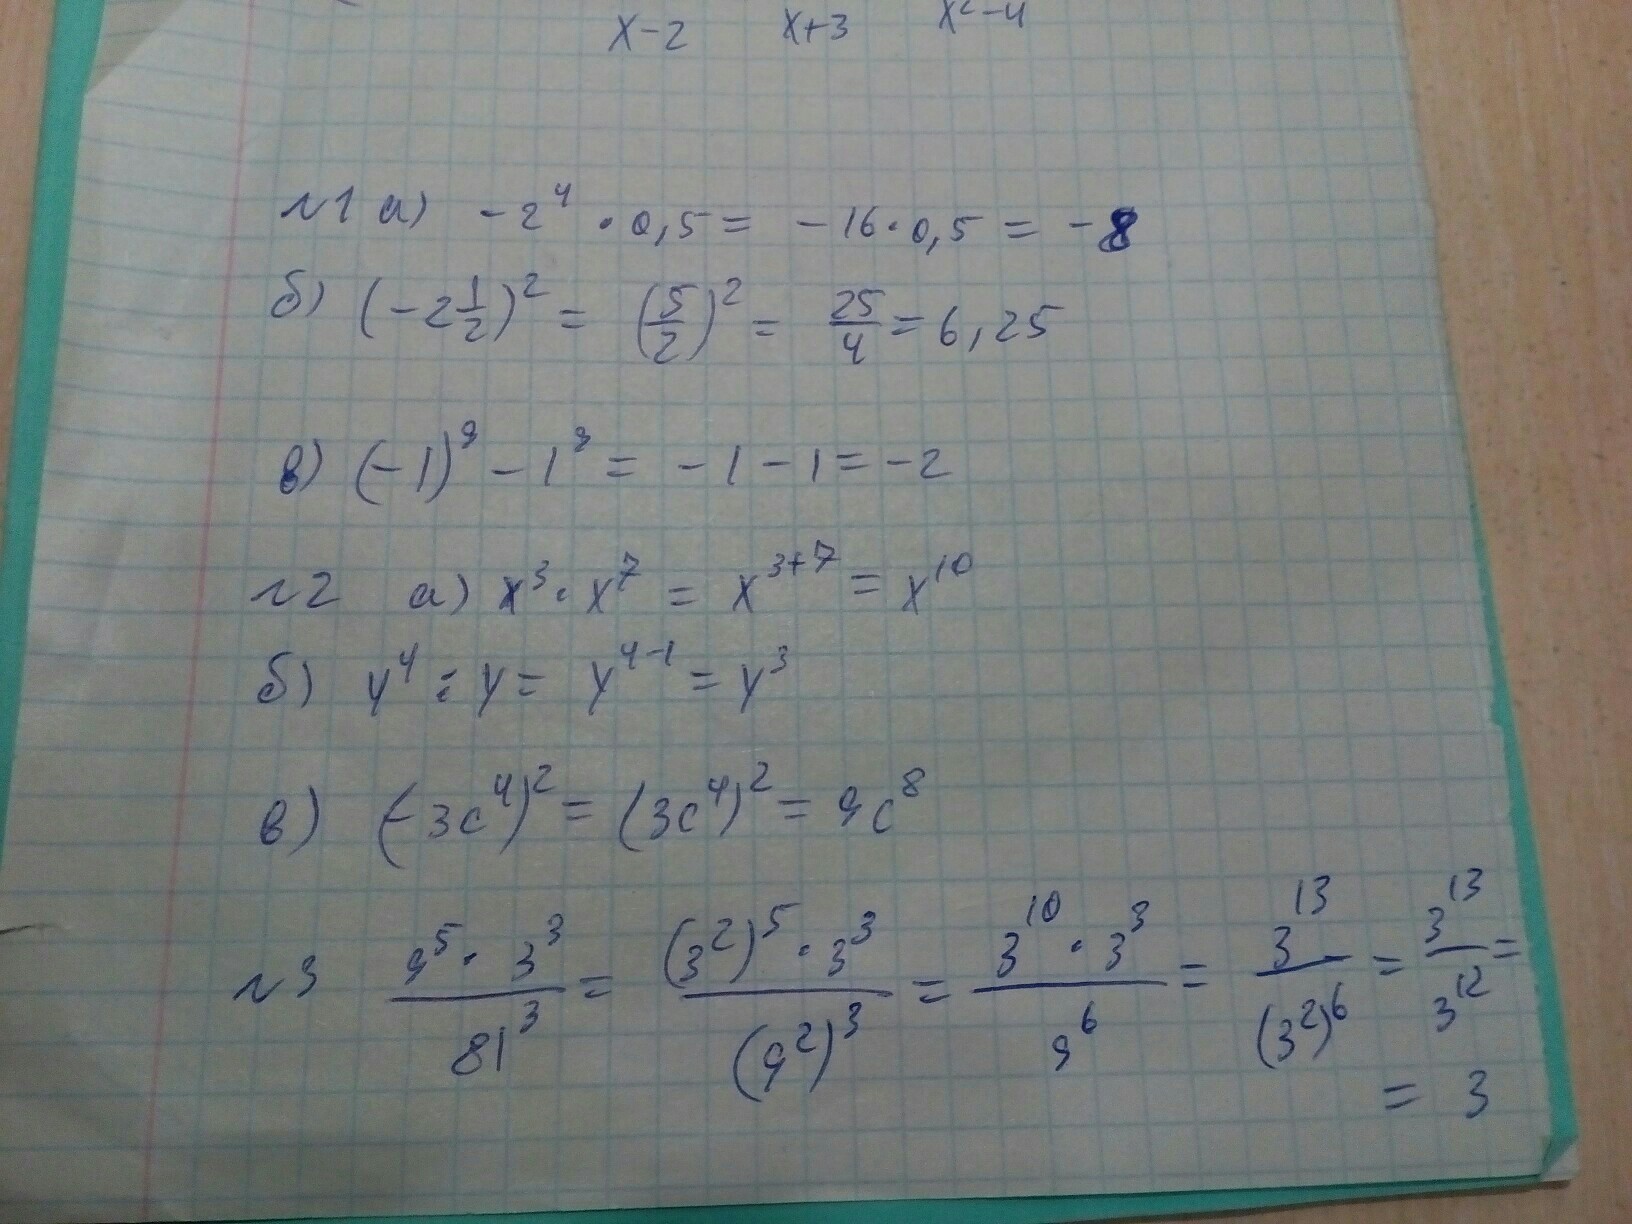 x-2 x+3 x²-4
№1 а) -2⁴ · 0,5 = -16 · 0,5 = -8
б) (-2 1/2)² = (5/2)² = 25/4 = 6,25
в) (-1)⁹ - 1⁹ = -1 - 1 = -2
№2 а) x³ · x⁷ = x³⁺⁷ = x¹⁰
б) y⁴ : y = y⁴⁻¹ = y³
в) (-3c⁴)² = (3c⁴)² = 9c⁸
№3 (9⁵ · 3³)/81³ = ((3²)⁵ · 3³)/(9²)³ = (3¹⁰ · 3³)/9⁶ = 3¹³/(3²)⁶ = 3¹³/3¹² =
= 3